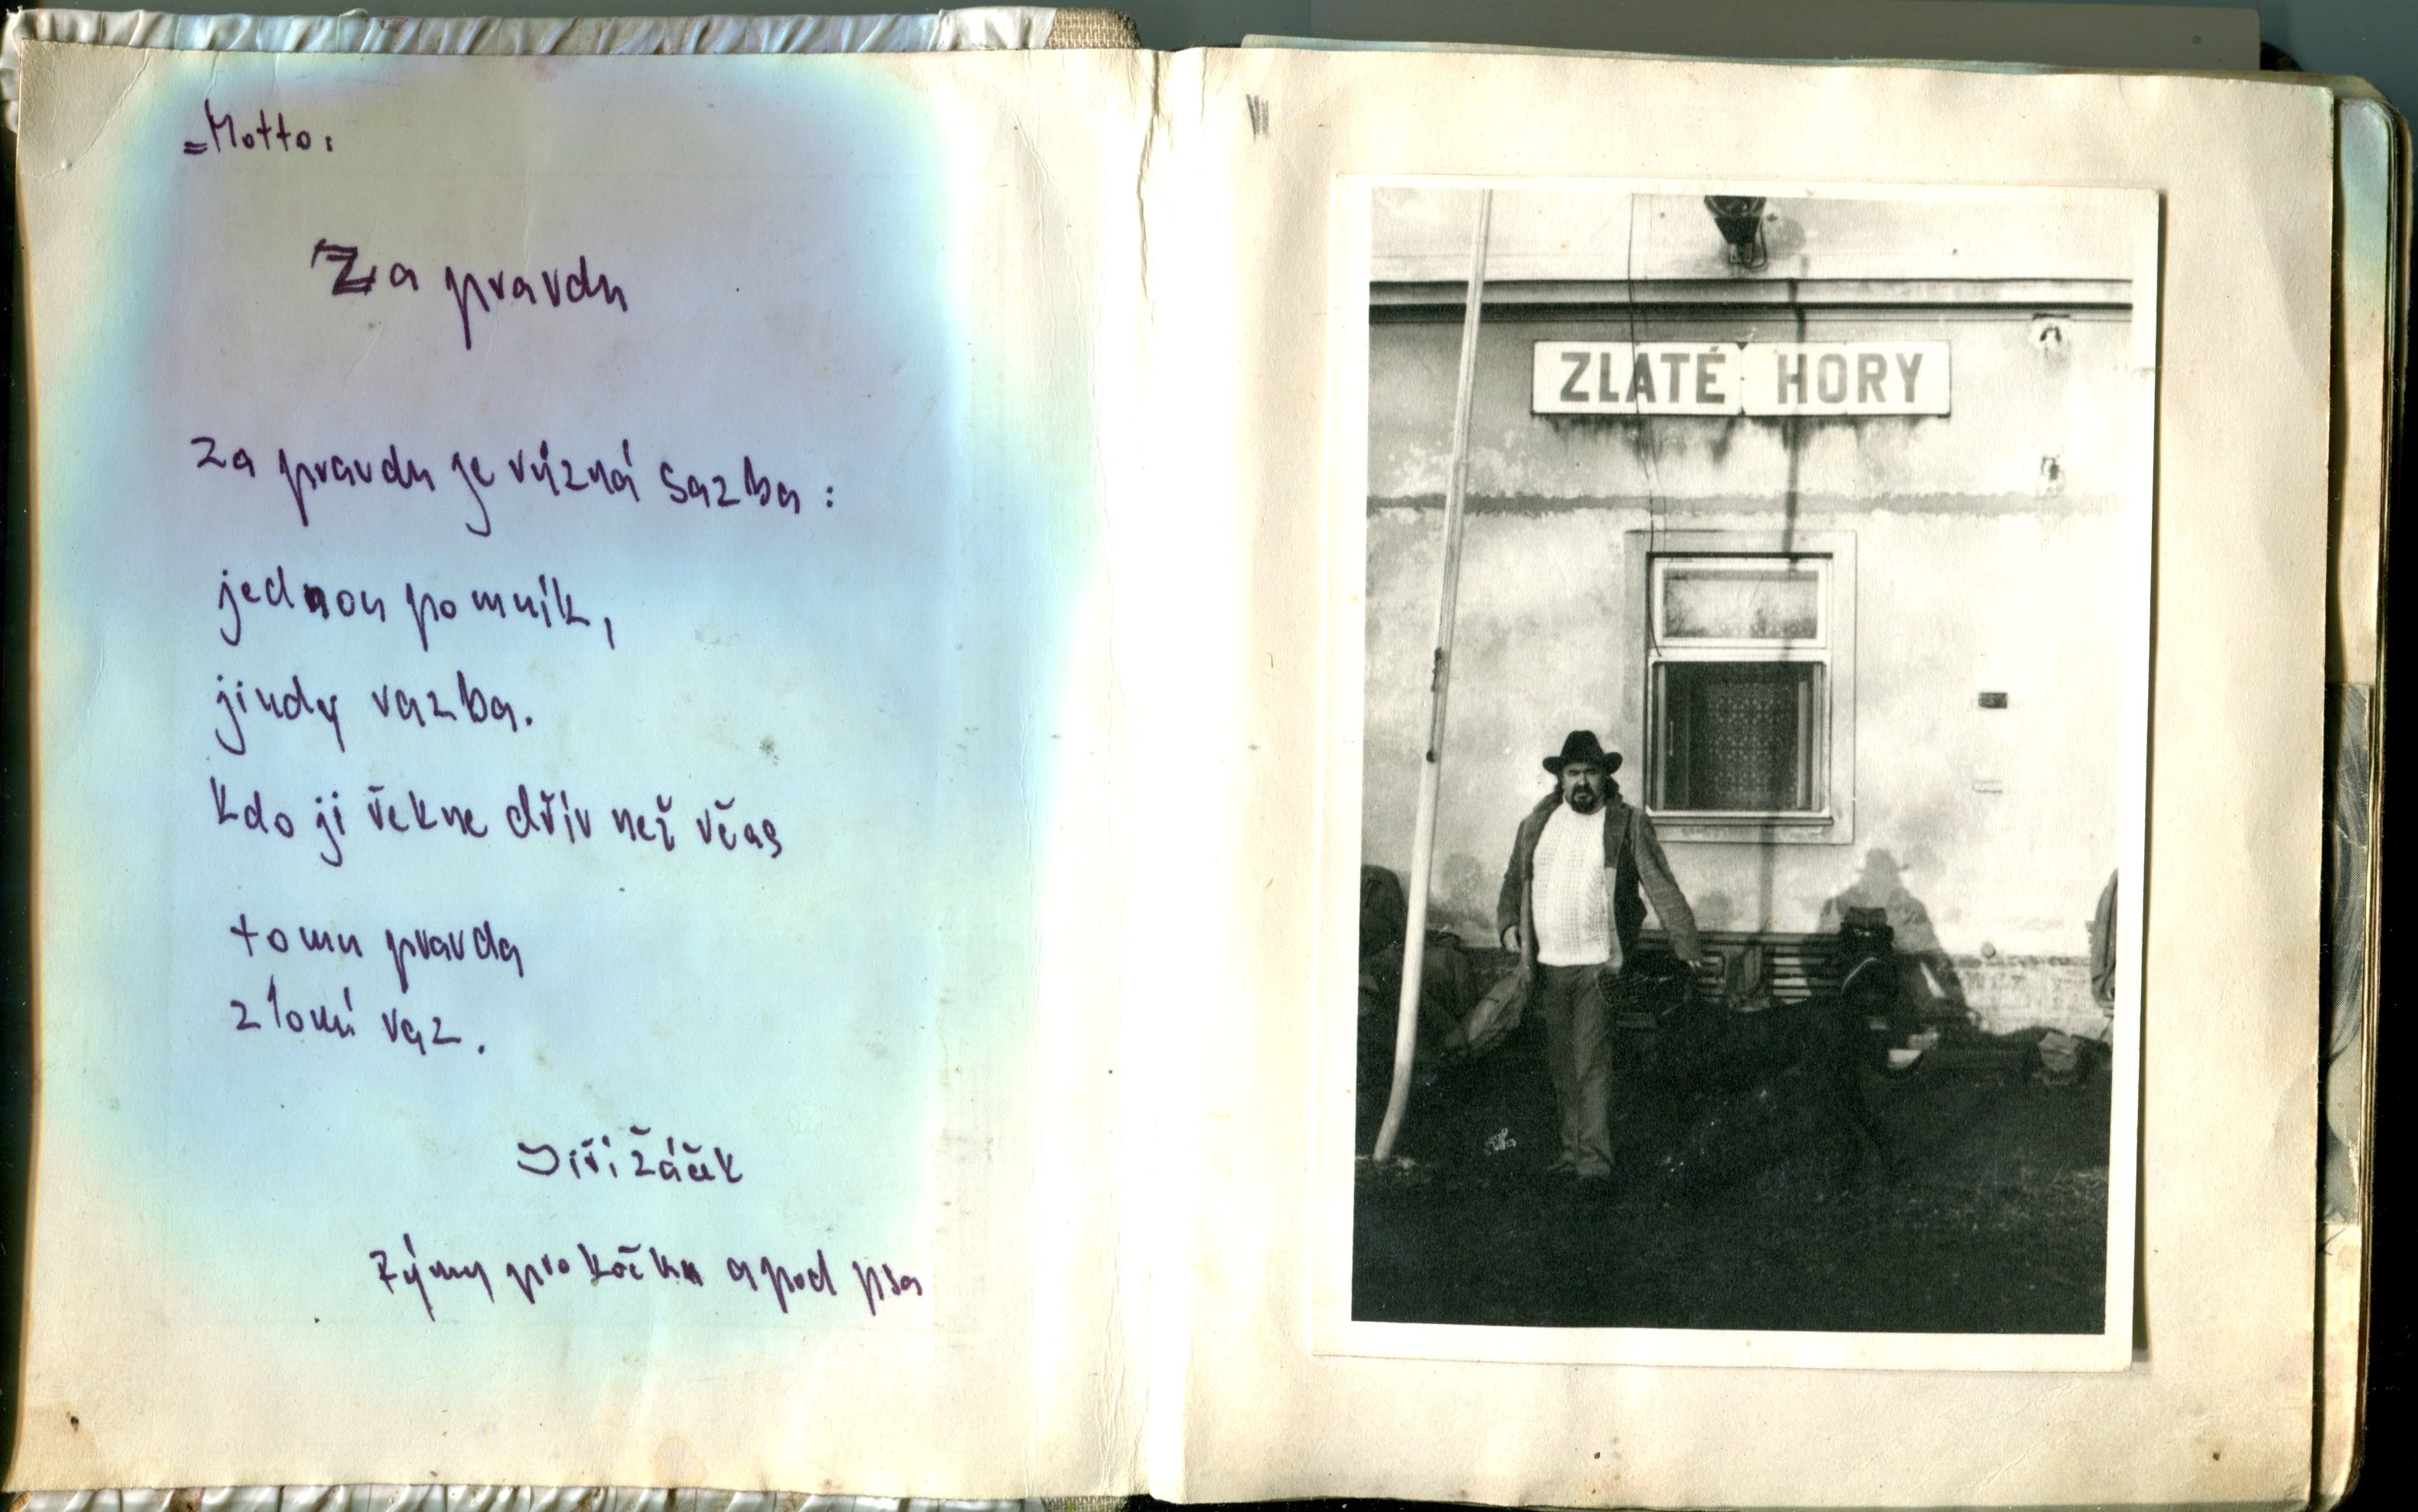 Motto:
Za pravdu
Za pravdu je různá sazba:
jednou pomník,
jindy vazba.
Kdo ji řekne dřív než včas
tomu pravda
zlomí vaz.
Jiří Žáček
Rýmy pro kočku a pod psa
ZLATÉ HORY